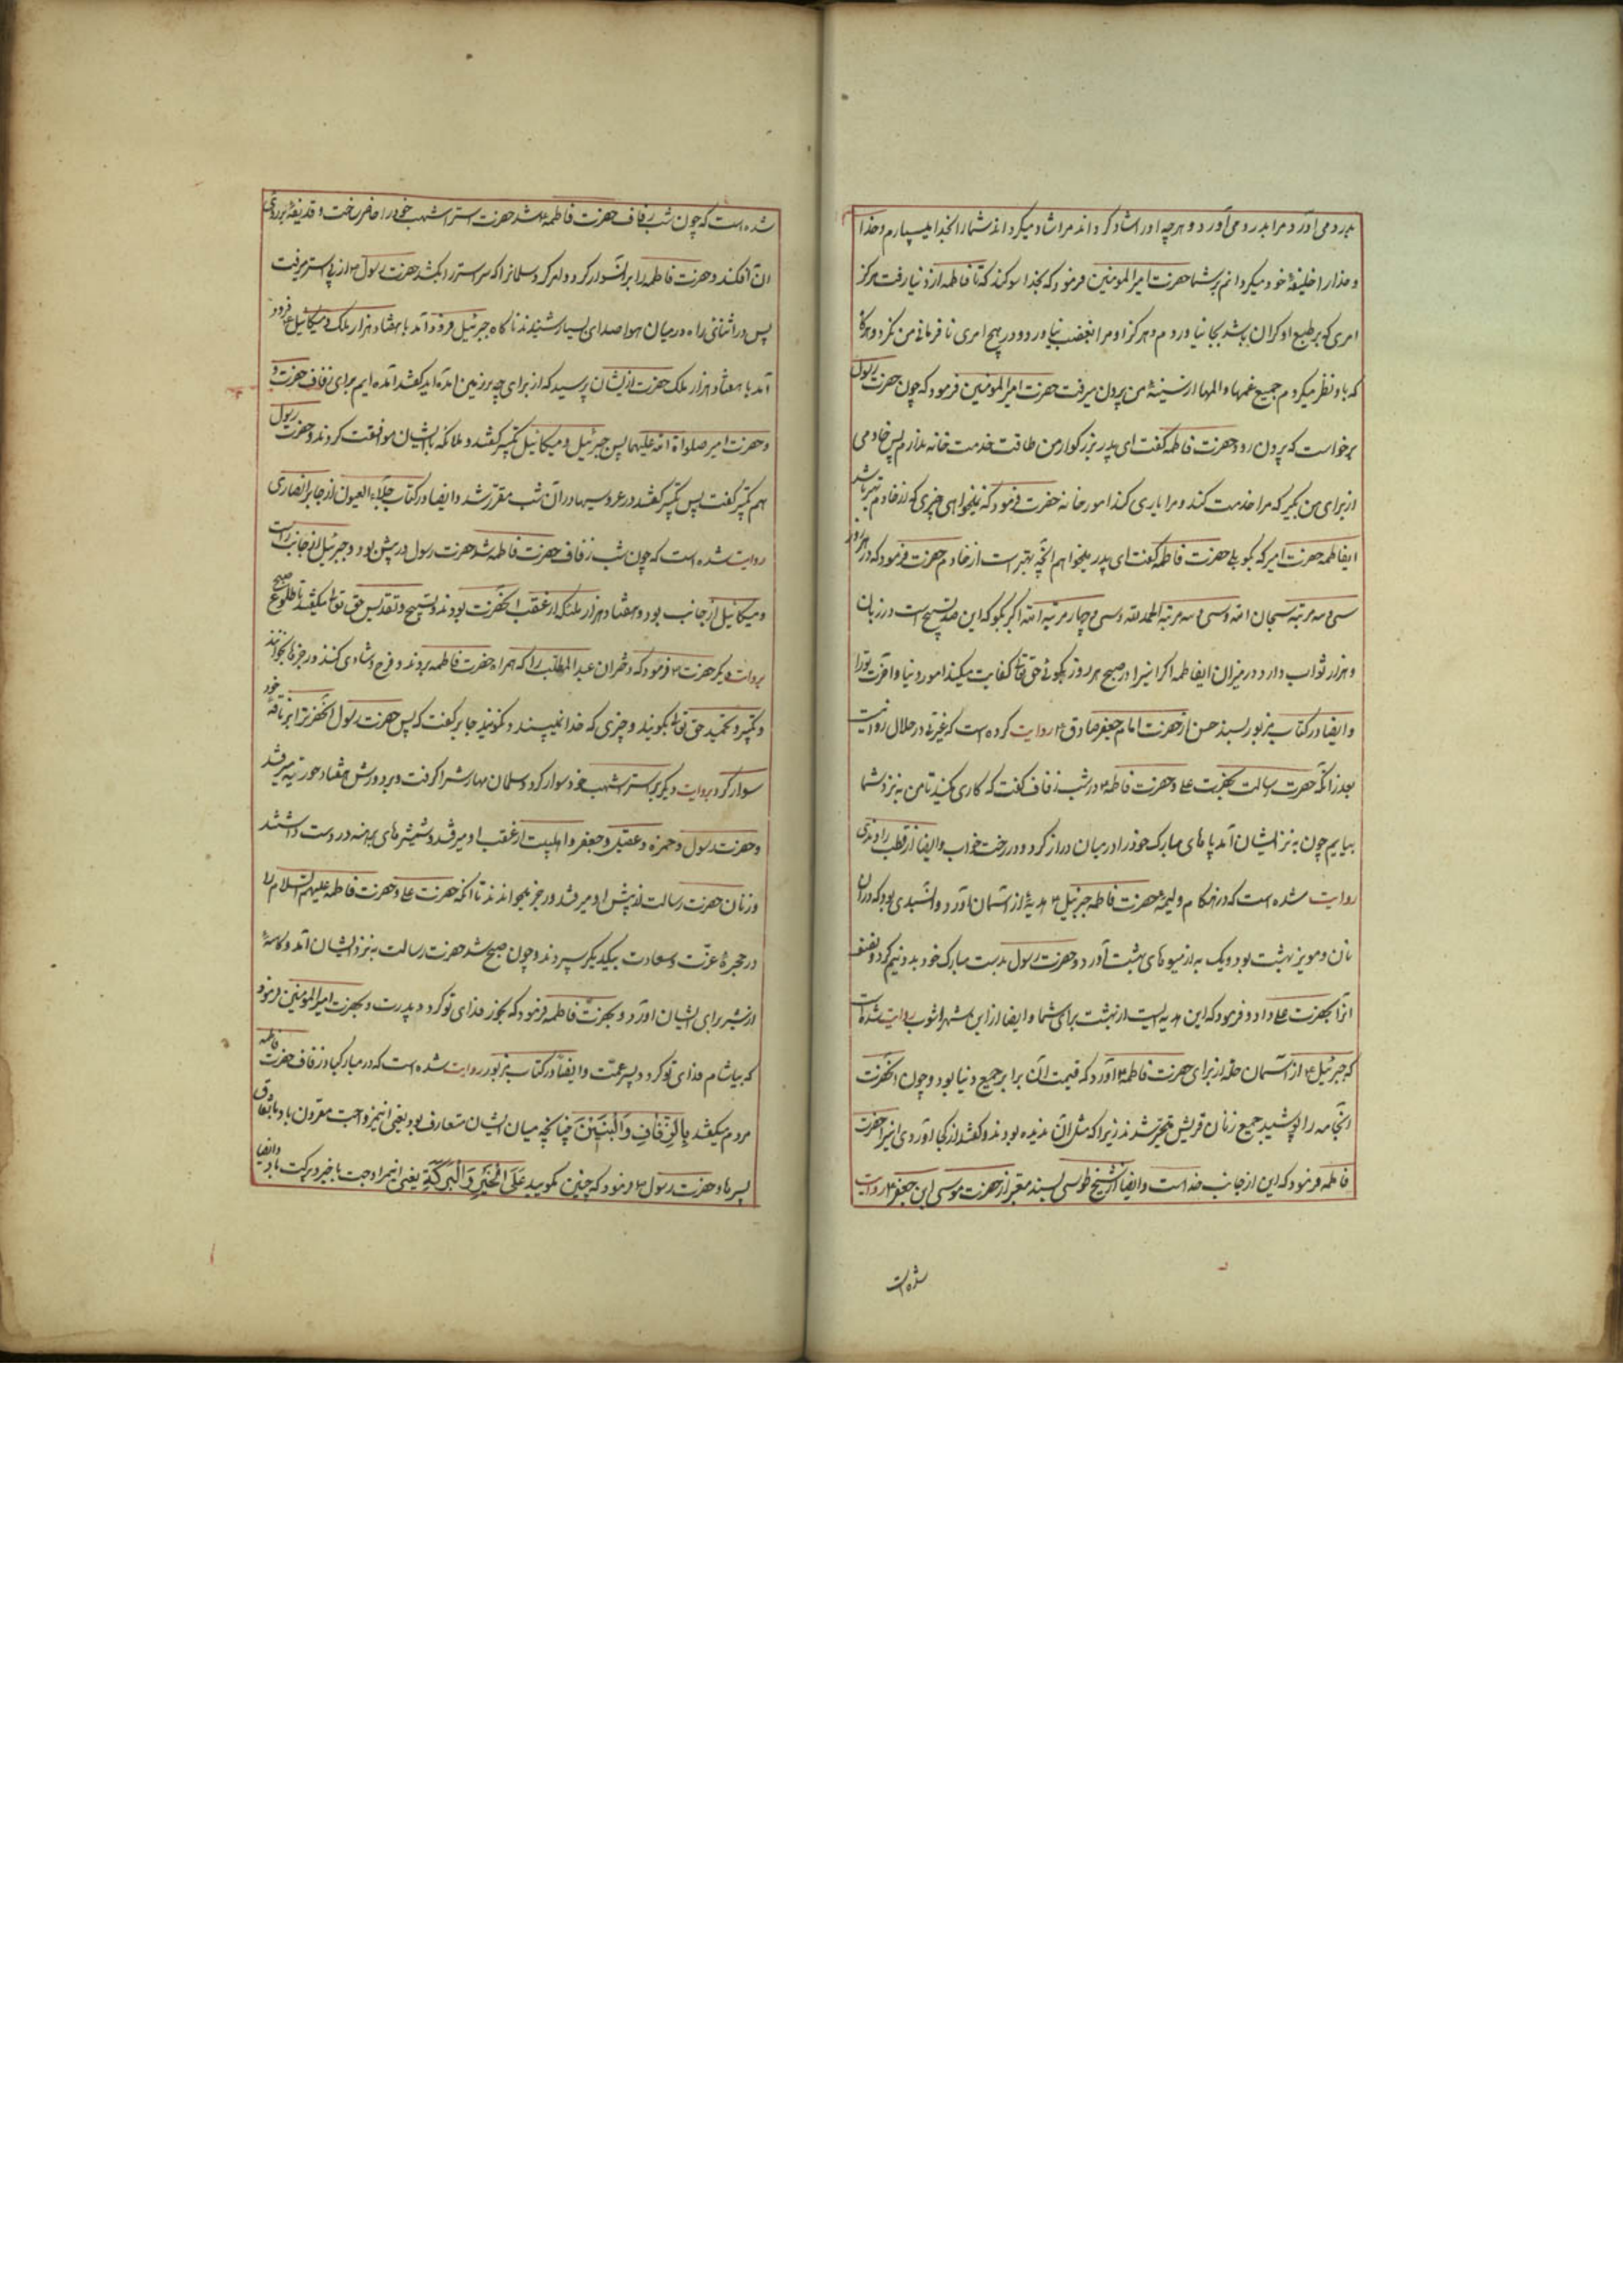 بدرد می آورد مرا بدرد می آورد و هر چه او را شاد کرداند مرا شاد میکرداند شما را بخدا میسپارم و خدا
و خدا را خلیفهٔ خود میکردانم بر شما حضرت امیر المومنین فرمود که بخدا سوکند که تا فاطمه از دنیا رفت هرکز
امری که بر طبع او کران باشد بجا نیاوردم و هرکز او مرا بغضب نیاورد و در هیچ امری نافرمانی من نکرد و هرکا
که باو نظر میکردم جمیع غمها و المها از سینهٔ من بیرون میرفت حضرت امیر المومنین فرمود که چون حضرت رسول
برخواست که بیرون رود حضرت فاطمه کفت ای پدر بزرکوار من طاقت خدمت خانه ندارم پس خادمی
از برای من بکیر که مرا خدمت کند و مرا یاری کند امور خانه حضرت فرمود که نمیخواهی چیزی که از خادم بهتر باشد
ایفاطمه حضرت امیر که بکو بلی حضرت فاطمه کفت ای پدر میخواهم انچه بهتر است از خادم حضرت فرمود که در هر روز
سی و سه مرتبه سبحان الله و سی و سه مرتبه الحمد لله و سی و چار مرتبه الله اکبر بکو که این صد تسبیح است در زبان
و هزار ثواب دارد در میزان ایفاطمه اکر اینرا در صبح هر روز بکوئی حق تعالی کفایت میکند امور دنیا و آخرت تو را
و ایضا در کتاب مزبور بسند حسن از حضرت امام جعفر صادق ع روایت کرده است که غیرتی در حلال روا نیست
بعد از انکه حضرت رسالت بحضرت علی و حضرت فاطمه ع در شب زفاف کفت که کاری مکنید تا من به نزد شما
بیایم چون به نزد ایشان آمد پاهای مبارک خود را در میان دراز کرد و در رخت خواب و ایضا از قطب راوندی
روایت شده است که در هنکام ولیمهٔ حضرت فاطمه جبرئیل ع هدیهٔ از آسمان آورد و آن سبدی بود که در ان
نان و مویز بهشت بود و یک به از میوهای بهشت آورد و حضرت رسول بدست مبارک خود بدو نیم کرد و نصف
انرا بحضرت علی داد و فرمود که این هدیه ایست از بهشت برای شما و ایضا از ابن شهراشوب روایت شده است
که جبرئیل ع از آسمان حلهٔ از برای حضرت فاطمه ع آورد که قیمت آن برابر جمیع دنیا بود و چون انحضرت
انجامه را پوشید جمیع زنان قریش متحیر شدند زیرا که مثل آن ندیده بودند و کفتند از کجا آوردی اینرا حضرت
فاطمه فرمود که این از جانب خدا است و ایضا از شیخ طوسی بسند معتبر از حضرت موسی ابن جعفر ع روایت
شده است
شده است که چون شب زفاف حضرت فاطمه ع شد حضرت استر اشهب خود را حاضر ساخت و قدیفهٔ بر روی
ان افکند و حضرت فاطمه را بر ان سوار کرد و امر کرد سلمانرا که سر استر را بکشد حضرت رسول ص از پی استر میرفت
پس در اثنای راه در میان هوا صدای بسیار شنیدند ناکاه جبرئیل فرود آمد با هفتاد هزار ملک و میکائیل ع فرود
آمد با هفتاد هزار ملک حضرت از ایشان پرسید که از برای چه بر زمین امده اید کفتند آمده ایم برای زفاف حضرت
و حضرت امیر صلواة الله علیهما پس جبرئیل و میکائیل تکبیر کفتند و ملائکه با ایشان موافقت کردند و حضرت رسول
هم تکبیر کفت پس تکبیر کفتند در عروسیها در ان شب مقرر شد و ایضا در کتاب جلاء العیون از جابر انصاری
روایت شده است که چون شب زفاف حضرت فاطمه شد حضرت رسول در پیش بود و جبرئیل از جانب راست
و میکائیل از جانب بود و هفتاد هزار ملک از عقب انحضرت بودند و تسبیح و تقدیس حق تعالی میکفتند تا طلوع صبح
بروایت دیکر حضرت ص فرمود که دختران عبد المطلب را که همراه حضرت فاطمه بروند و فرح و شادی کنند و رجزها بخوانند
و تکبیر و تحمید حق تعالی بکویند و چیزی که خدا نمیپسند د نکویند جابر کفت که پس حضرت رسول انحضرترا بر ناقهٔ خود
سوار کرد و بروایت دیکر بر استر اشهب خود سوار کرد و سلمان مهارش را کرفت و بر دورش هفتاد حوریه میرفتند
و حضرت رسول و حمزه و عقیل و جعفر و اهلبیت از عقب او میرفتند و شمشیرهای برهنه در دست داشتند
و زنان حضرت رسالت از پیش او میرفتند و رجز میخواندند تا انکه حضرت علی و حضرت فاطمه علیهم السلام را
در حجرهٔ عزت و سعادت بیکدیکر سپردند و چون صبح شد حضرت رسالت به نزد ایشان آمد و کاسهٔ
از شیر برای ایشان اورد و بحضرت فاطمه فرمود که بخور فدای تو کردد پدرت و بحضرت امیر المومنین فرمود
که بیاشام فدای تو کردد پسر عمت و ایضا در کتاب مزبور روایت شده است که در مبارکباد زفاف حضرت فاطمه
مردم میکفتند بِالرِّفَافِ وَالْبَنِیْنَ چنانچه میان ایشان متعارف بود یعنی این مزاوجت مقرون باد باتفاق
پسرها و حضرت رسول ص فرمود که چنین نکویید عَلَی الْخَیْرِ وَالْبَرَکَةِ یعنی این مزاوجت با خیر و برکت باد و ایضا